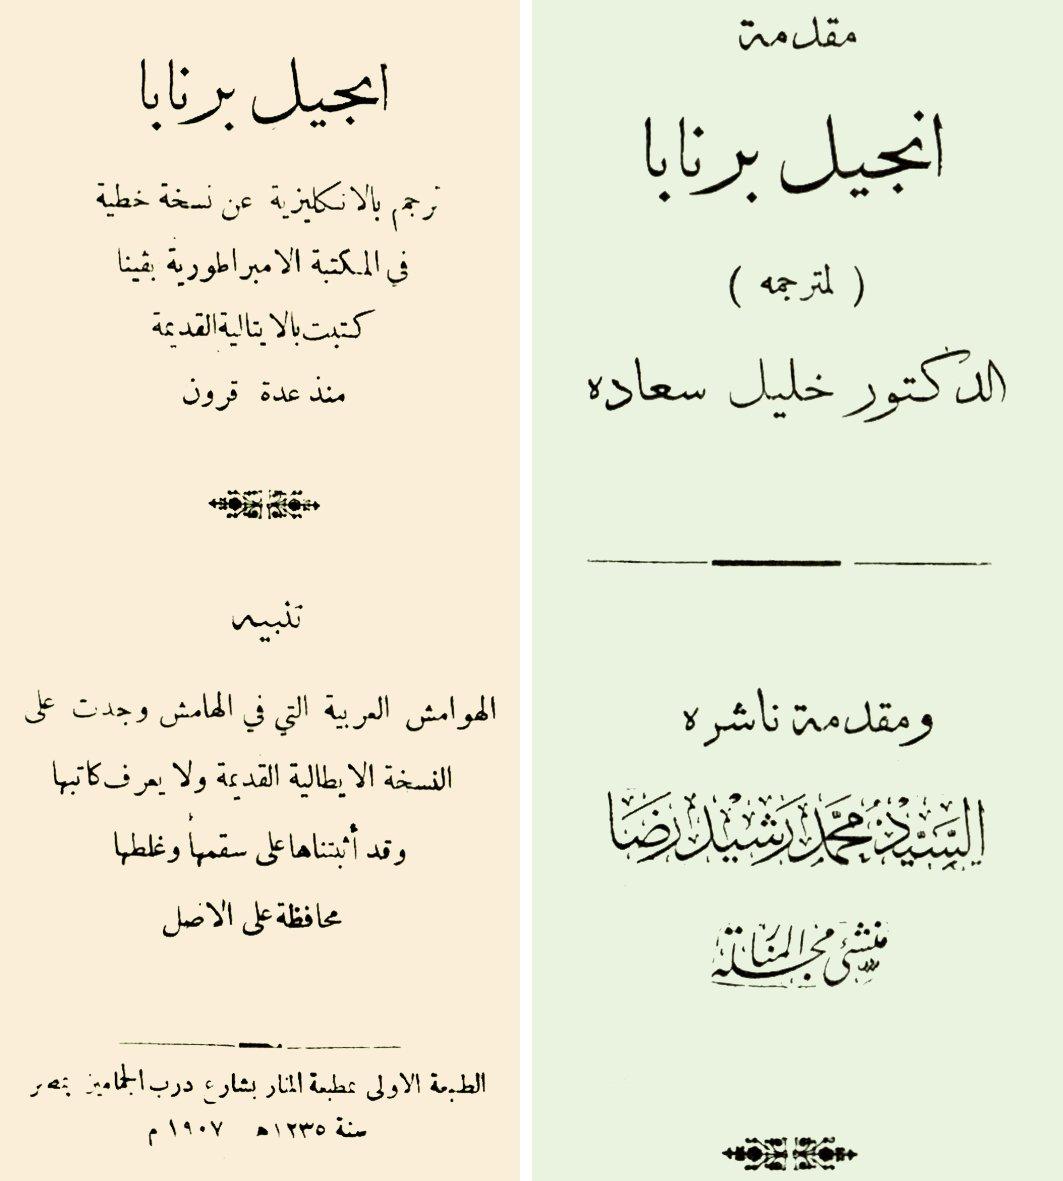 مقدمة
انجيل برنابا
( لمترجمه )
الدكتور خليل سعاده
ومقدمة ناشره
السَّيِّدْ مُحَمَّد رَشيْد رِضَا
منشئ مجلة المنار
انجيل برنابا
ترجم بالانكليزية عن نسخة خطية
في المكتبة الامبراطورية بڤينا
كتبت بالايتالية القديمة
منذ عدة قرون
تنبيه
الهوامش العربية التي في الهامش وجدت على
النسخة الايطالية القديمة ولا يعرف كاتبها
وقد أثبتناها على سقمها وغلطها
محافظة على الاصل
الطبعة الاولى بمطبعة المنار بشارع درب الجماميز بمصر
سنة ١٢٣٥ه ١٩٠٧ م